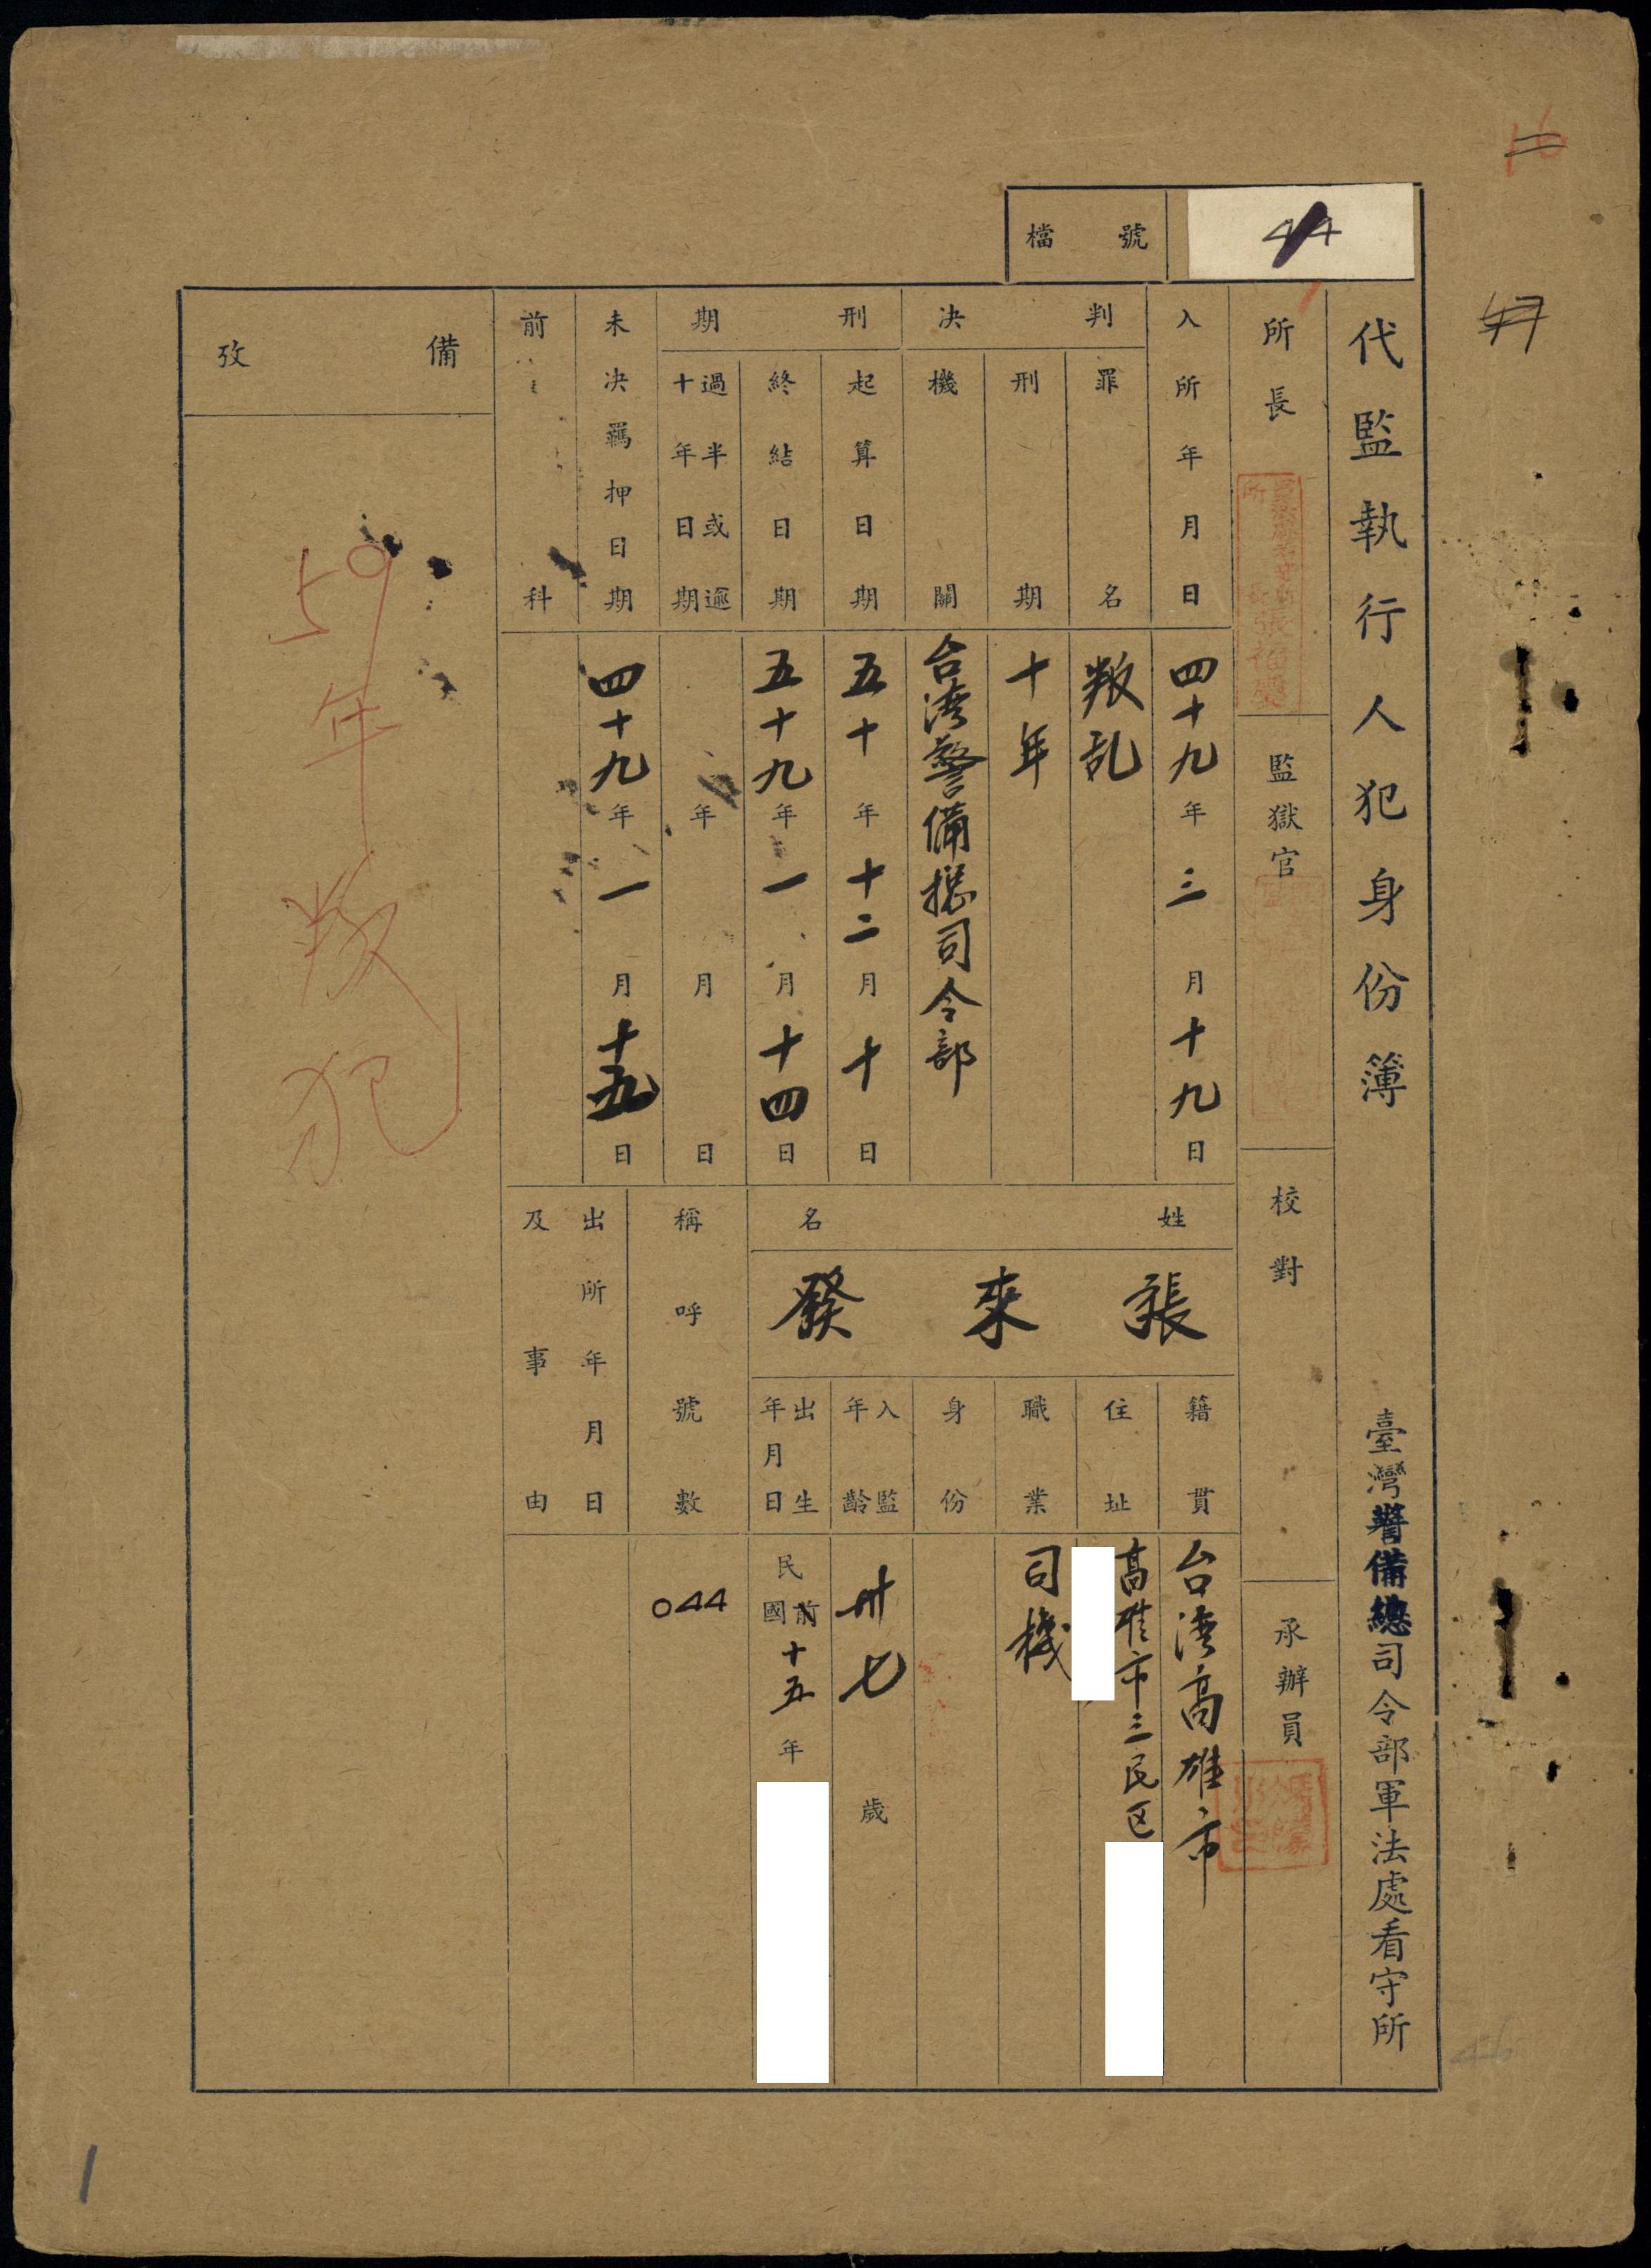 檔號
44
代監執行人犯身份簿
臺灣警備總司令部軍法處看守所
所長
監獄官
校對
承辦員
入所年月日
四十九年三月十九日
判決
罪名
叛乱
刑期
十年
機關
台湾警備總司令部
刑期
起算日期
五十年十二月十日
終結日期
五十九年一月十四日
過半或逾十年日期
年月日
未決羈押日期
四十九年一月十五日
前科
姓名
張來發
籍貫
台湾高雄市
住址
高雄市三民区
職業
司機
身份
入監年齡
卅七歲
出生年月日
民國前十五年
稱呼號數
044
出所年月日及事由
備攷
59年叛犯
16
47
46
1